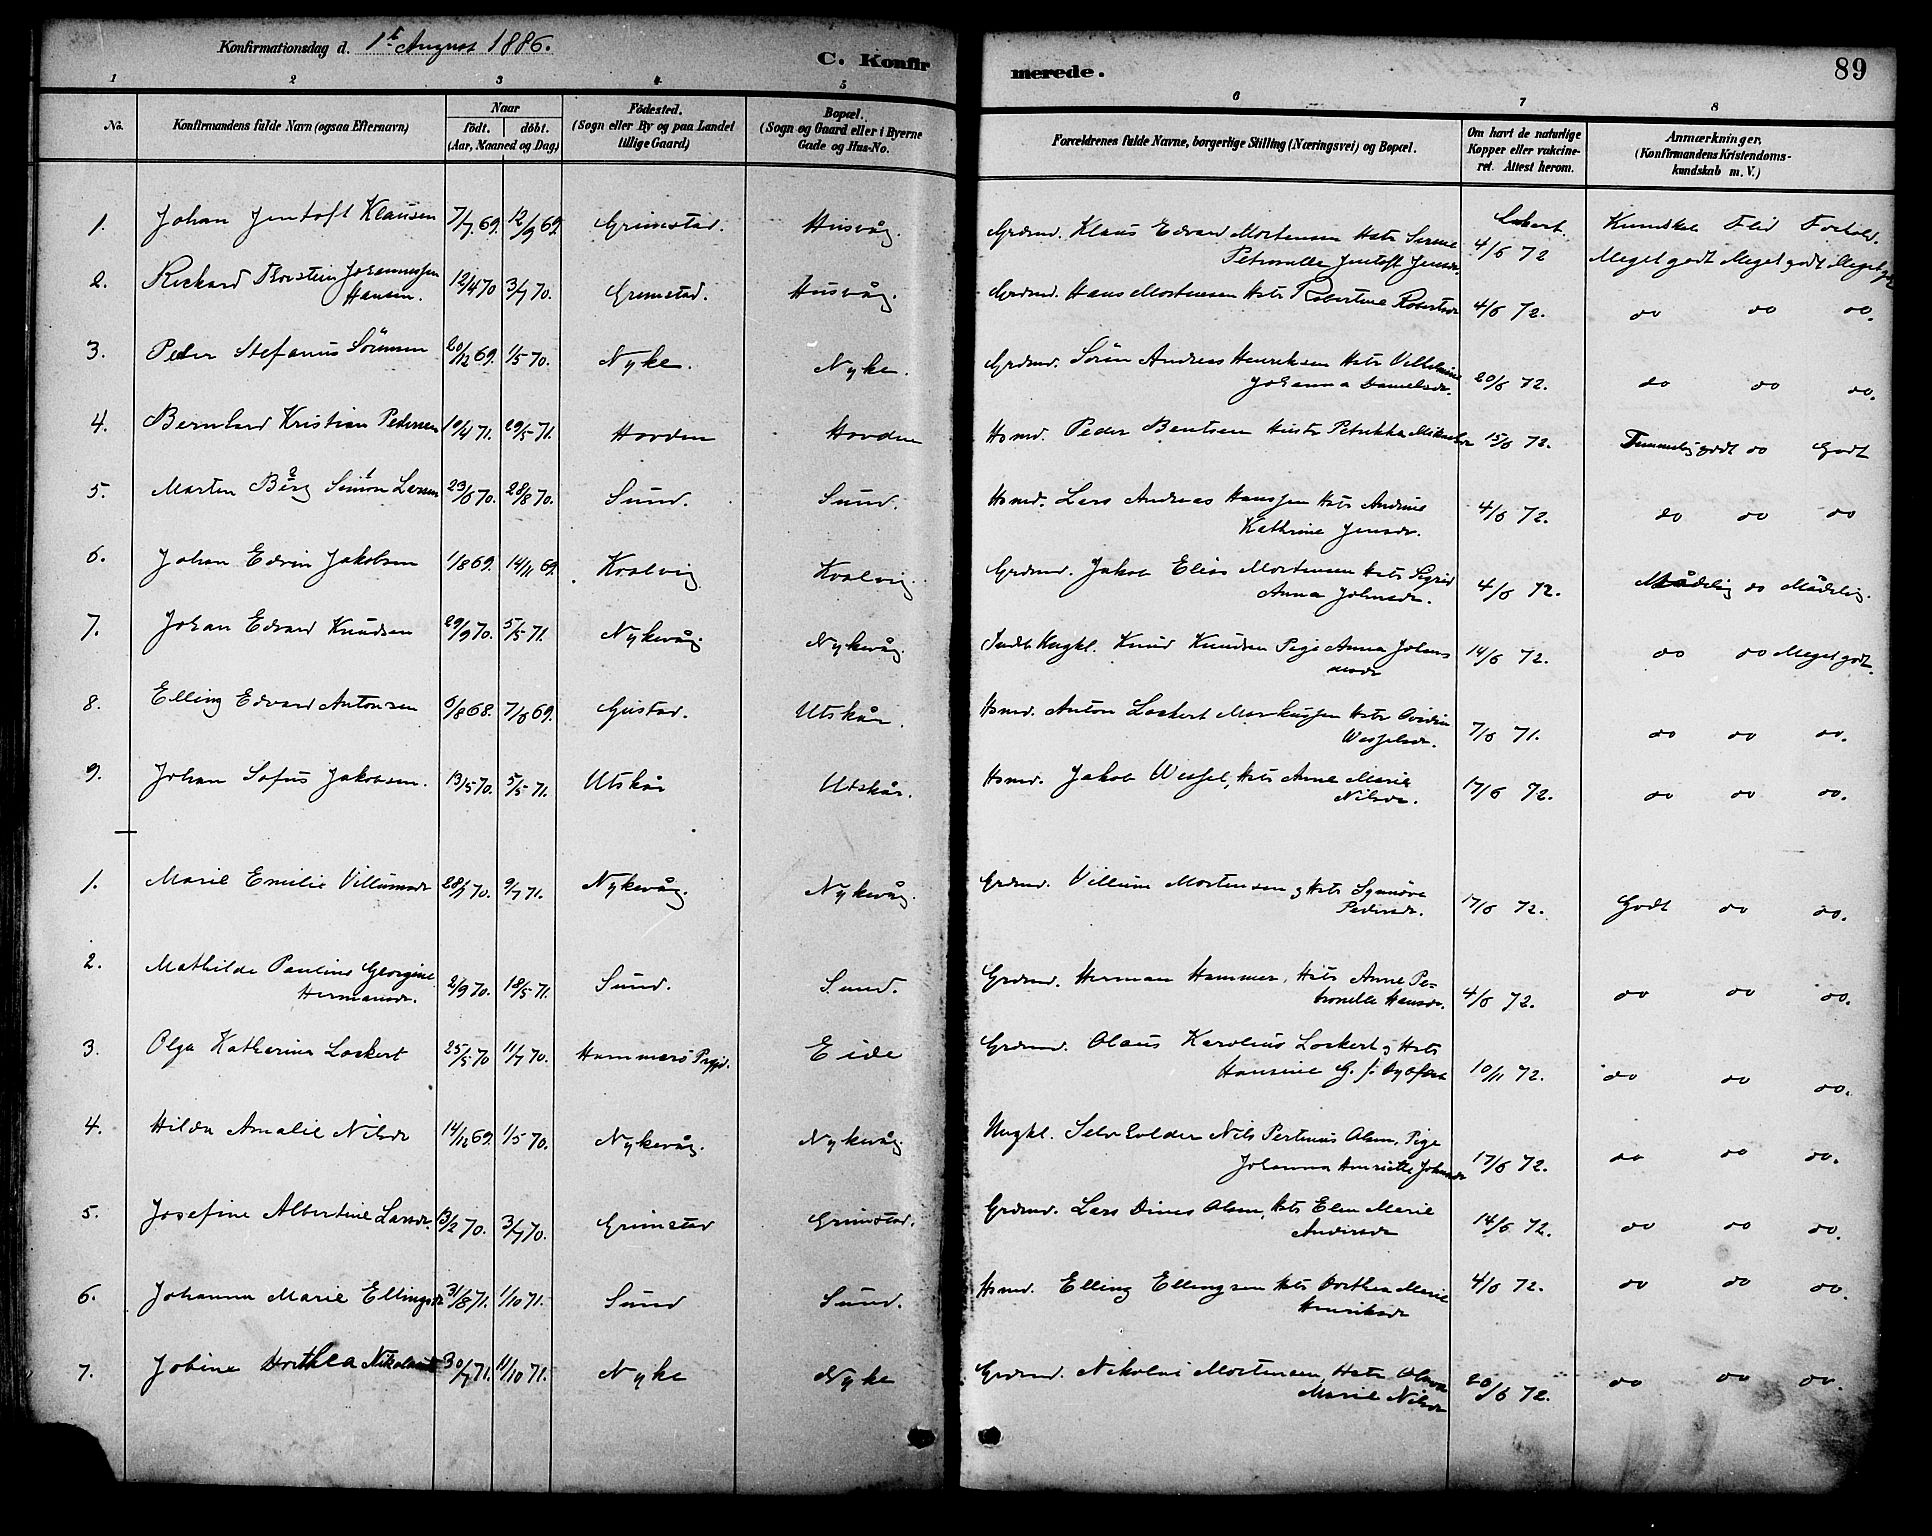 Konfirmationsdag d. 1ste August 1886.
C. Konfirmerede.
89
1 2 3 4 5 6 7 8
No.
Konfirmandens fulde Navn (ogsaa Efternavn)
Naar
født. døbt.
(Aar, Maaned og Dag)
Födested.
(Sogn eller By og paa Landet
tillige Gaard)
Bopæl.
(Sogn og Gaard eller i Byerne
Gade og Hus-No.
Forældrenes fulde Navne, borgerlige Stilling (Næringsvei) og Bopæl.
Om havt de naturlige
Kopper eller vakcine-
ret. Attest herom.
Anmærkninger.
(Konfirmandens Kristendoms-
kundskab m. V.)
Kundskab Flid Forhold.
1. Johan Jentoft Klausen 7/7 69. 12/9 69. Grimstad. Husvåg. Grdmd. Klaus Edvard Mortensen Hstr Serine
Petronelle Jentoft Jensdr. 4/6 72 Meget godt Meget godt Meget godt
2. Rickard Thorstein Johannessen
Hansen. 12/4 70 3/7 70. Grimstad. Husvåg. Grdmd. Hans Mortensen Hstr Robertine Robertsdr 4/6 72. do do do.
3. Peder Stefanus Sörensen 20/12 69. 1/5 70. Nyke. Nyke. Grdmd. Sören Andreas Henriksen Hstr Vilhelmine
Johanna Danielsdr. 20/6 72. do do do.
4. Bernhard Kristian Pedersen 10/4 71. 29/5 71. Hovden Hovden Hsmd. Peder Bentsen Hustr Petrikke Mikaelsdr 15/6 72. Temmelig godt do Godt
5. Morten Berg Simon Larsen 23/6 70. 28/8 70. Sund. Sund. Hsmd. Lars Andreas Hanssen Hstr Andrine
Kathrine Jensdr. 4/6 72. do do do
6. Johan Edvin Jakobsen 1/8 69. 14/11 69. Kvalvig Kvalvig. Grdmd. Jakob Elias Mortensen Hstr Sigrid
Anna Johnsdr. 4/6 72. Mådelig do Mådelig.
7. Johan Edvard Knudsen 29/9 70. 5/5 71. Nykevåg Nykevåg. Indb Ungkl. Knud Knudsen Pige Anna Johans
nesdr 14/6 72. do do Meget godt.
8. Elling Edvard Antonsen 6/8 68. 7/6 69. Gustad. Utskår. Hsmd. Anton Lockert Markussen Hstr Ovidia
Wesselsdr. 7/6 71. do do do.
9. Johan Sofus Jakobsen. 13/5 70. 5/5 71. Utskår Utskår. Hsmd. Jakob Wessel, Hstr Anne Marie
Nilsdr. 17/6 72. do do do.
1. Marie Emilie Villumsdr 28/7 70. 9/7 71. Nykevåg. Nykevåg. Grdmd. Villum Mortensen og Hstr Synnöve
Pedersdr. 17/6 72. Godt do do.
2. Mathilde Pauline Georgine
Hermansdr. 2/9 70. 18/5 71. Sund. Sund. Grdmd. Herman Hammer, Hstr Anne Pe-
tronelle Hansdr. 4/6 72. do do do.
3. Olga Katharina Lockert 25/5 70 11/7 70. Hammerö Prgjd. Eide Grdmd. Olaus Karolius Lockert og Hstr
Hansine G. f. 10/11 72. do do do.
4. Hilda Amalie Nilsdr 14/12 69. 1/5 70. Nykevåg. Nykevåg Ungkl. Selveolder Nils Pertinus Olsen, Pige
Johanna Henriette Johnsdr 17/6 72. do do do.
5. Josefine Albertine Larsdr. 13/2 70. 3/7 70. Grimstad Grimstad. Grdmd. Lars Dines Olsen, Hstr Elen Marie
Andersdr 14/6 72. do do do.
6. Johanna Marie Ellingsdr 31/8 71. 1/10 71. Sund Sund. Hsmd. Elling Ellingsen Hstr Dorthea Marie
Henriksdr 4/6 72. do do do.
7. Jobine Dorthea Nikolaisdr 30/7 71. 11/10 71. Nyke Nyke Grdmd. Nikolai Mortensen, Hstr Olava
Marie Nilsdr 20/6 72. do do do.